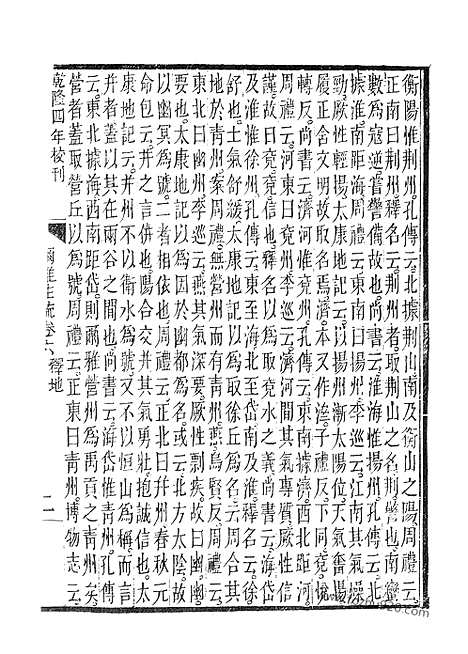 衡陽惟荆州孔傳云北據荆山南及衡山之陽周禮云
正南曰荆州釋名云荆州者取荆山之名荆警也南蠻
數爲寇逆嘗警備故也尚書云淮海惟揚州孔傳云北
據淮南距海周禮云東南曰揚州李巡云江南其氣燥
勁厥性輕揚太康地記云以揚州漸太陽位天氣奮揚
履正含文明故取名焉濟本又作泲子禮反下同兗悅
轉反尚書云濟河惟兗州孔傳云東南據濟西北距河
周禮云河東曰兗州李巡云濟河間其氣專質厥性信
謹故曰兗兗信也釋名以爲取兗水之義尚書云海岱
及淮惟徐州孔傳云東至海北至岱南及淮釋名云徐
舒也土氣舒緩太康地記以爲取徐丘爲名云周合其
地於青州案周禮無營州有青州燕烏賢反周禮云
東北曰幽州李巡云燕其氣深要厥性剽疾故曰幽幽
要也太康地記以爲因於幽都爲名或云北方太陰故
以幽冥爲號二者相依也周禮云正北曰幷州春秋元
命包云幷之言併也陽合交幷其氣勇壯抱誠信也太
康地記云幷州不以衛水爲號又不以恒山爲稱而言
幷者蓋以其在兩谷之間也尚書云海岱惟青州孔傳
云東北據海西南距岱則爾雅營州爲禹貢之青州矣
營者蓋取營丘以爲號周禮云正東曰青州博物志云
乾隆四年校刊
爾雅注疏卷六 釋地
二